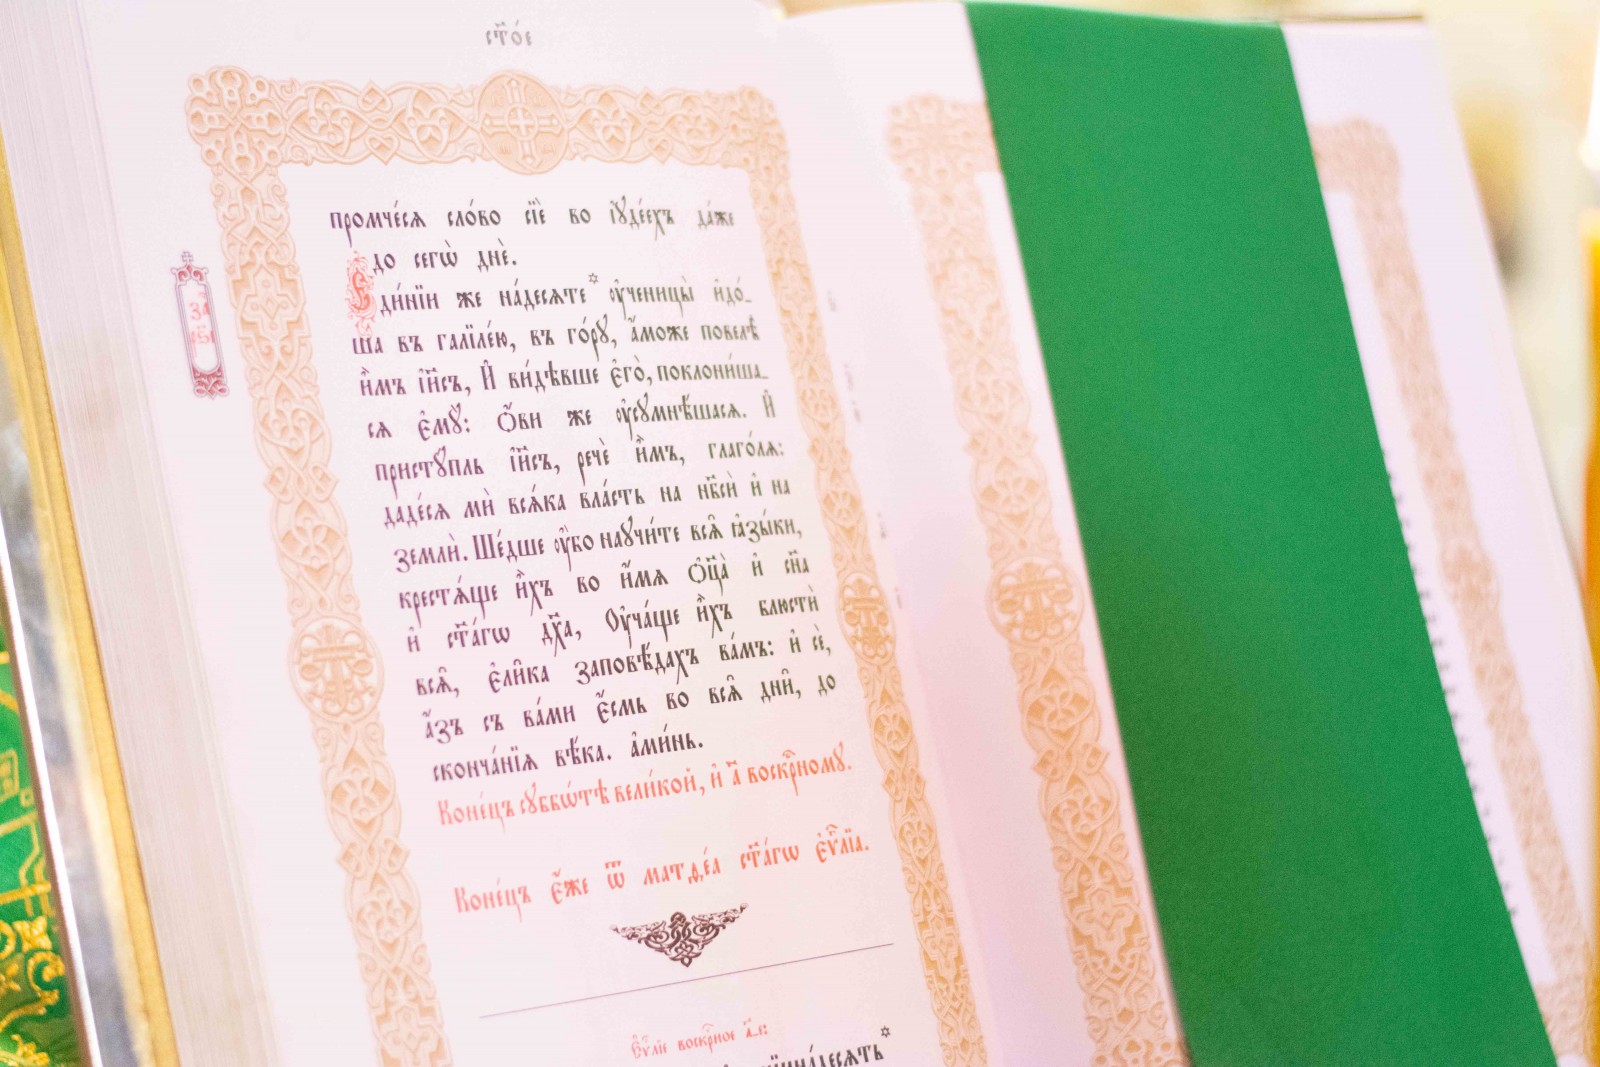 ст҃о́е
промче́сѧ сло́во сїѐ во і҆ꙋде́ехъ да́же
до сегѡ̀ днѐ.
Є҆ди́нїи же на́десѧте* ᲂу҆ченицы̀ и҆до́-
ша въ галїле́ю, въ го́рꙋ, а҆́може повелѣ̀
и҆̀мъ і҆и҃съ, И҆ ви́дѣвше є҆го̀, поклони́ша-
сѧ є҆мꙋ̀: Ѻ҆́ви же ᲂу҆сꙋмнѣ́шасѧ. И҆
пристꙋ́пль і҆и҃съ, речѐ и҆̀мъ, глаго́лѧ:
даде́сѧ мѝ всѧ́ка вла́сть на нб҃сѝ и҆ на
землѝ. Ше́дше ᲂу҆̀бо наꙋчи́те всѧ̑ ꙗ҆зы́ки,
крестѧ́ще и҆̀хъ во и҆́мѧ ѻ҆ц҃а̀ и҆ сн҃а
и҆ ст҃а́гѡ дх҃а, Оу҆ча́ще и҆̀хъ блюстѝ
всѧ̑, є҆ли̑ка заповѣ́дахъ ва́мъ: и҆ сѐ,
а҆́зъ съ ва́ми є҆́смь во всѧ̑ дни̑, до
сконча́нїѧ вѣ́ка. а҆ми́нь.
Коне́цъ сꙋббѡ́тѣ вели́кой, и҆ а҃ воскрⷭ҇номꙋ.
Коне́цъ є҆́же ѿ матѳе́а ст҃а́гѡ є҆ѵⷢ҇лїа.
Є҆ѵⷢ҇лїе воскрⷭ҇ное а҃-е: